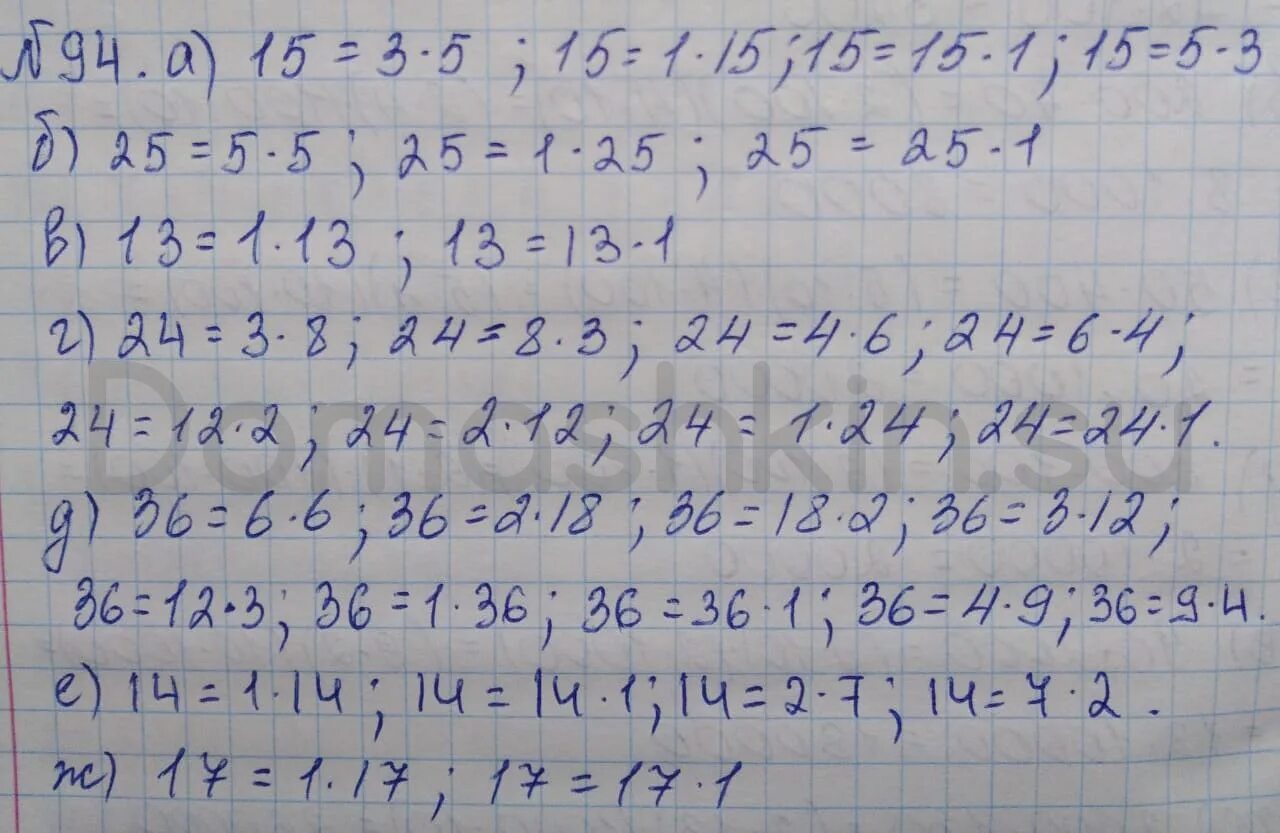 №94. а) 15 = 3·5 ; 15 = 1·15 ; 15 = 15·1 ; 15 = 5·3
б) 25 = 5·5 ; 25 = 1·25 ; 25 = 25·1
в) 13 = 1·13 ; 13 = 13·1
г) 24 = 3·8 ; 24 = 8·3 ; 24 = 4·6 ; 24 = 6·4 ;
24 = 12·2 ; 24 = 2·12 ; 24 = 1·24 ; 24 = 24·1 .
Domashkin.su
д) 36 = 6·6 ; 36 = 2·18 ; 36 = 18·2 ; 36 = 3·12 ;
36 = 12·3 ; 36 = 1·36 ; 36 = 36·1 ; 36 = 4·9 ; 36 = 9·4 .
е) 14 = 1·14 ; 14 = 14·1 ; 14 = 2·7 ; 14 = 7·2 .
ж) 17 = 1·17 ; 17 = 17·1